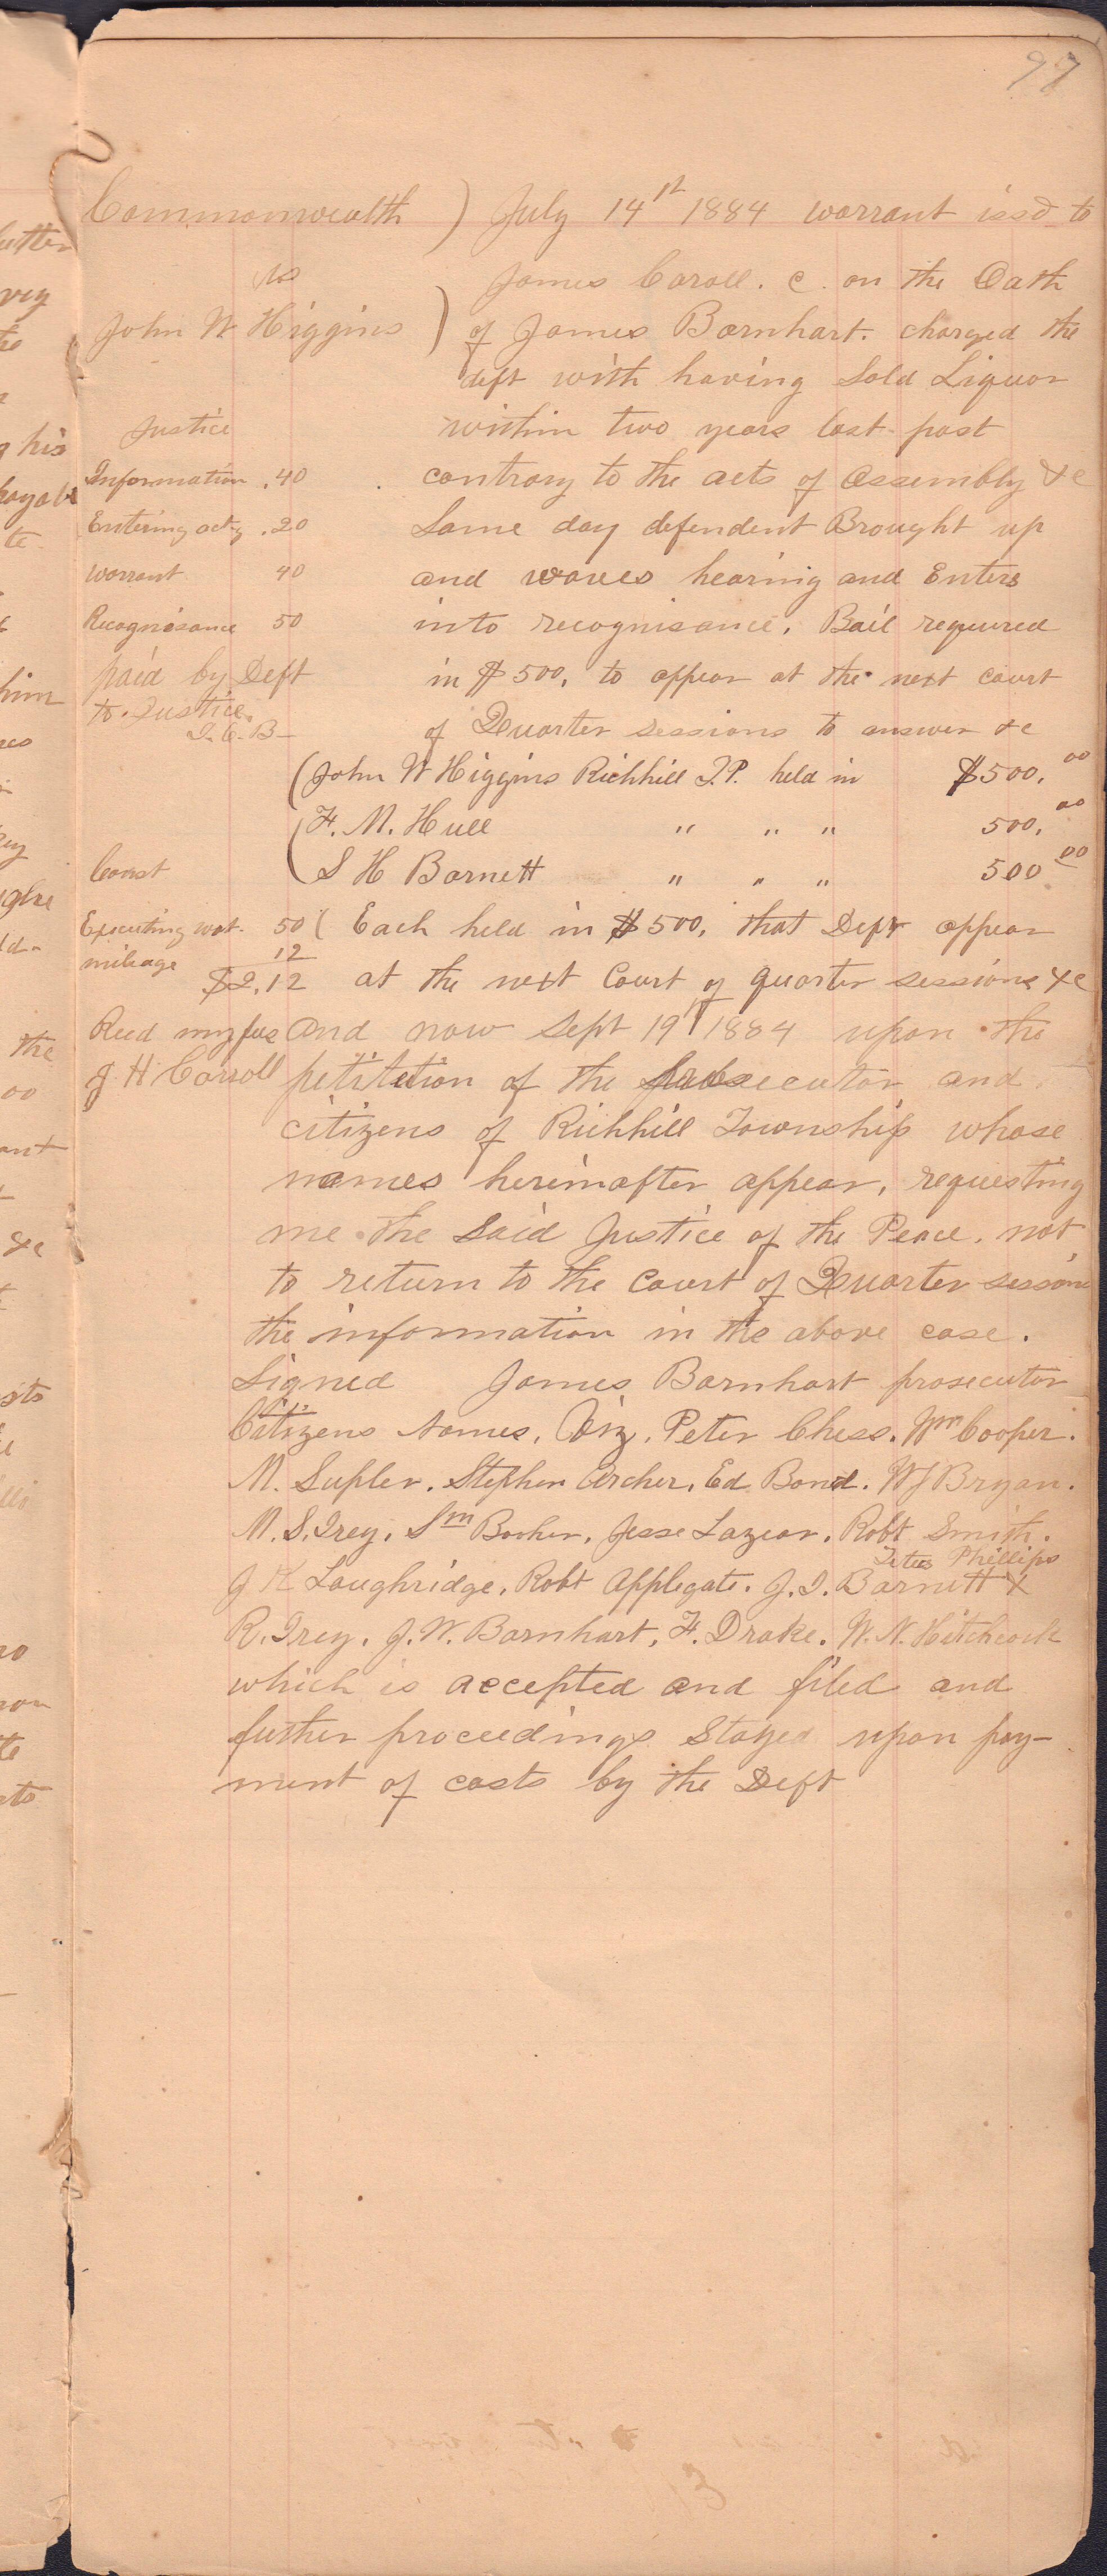 97
Commonwealth ) July 14st 1884 warrant issd to
vs James Caroll. C. on the Oath
John W. Higgins ) of James Barnhart. charged the
deft with having Sold Liquor
Justice within two years last past
Information .40 contrary to the acts of Assembly &c
Entering acty .20 Same day defendent Brought up
warrant 40 and waves hearing and Enters
Recognisance 50 into recognisance. Bail required
paid by Deft in $500, to appear at the next court
to Justice. of Quarter sessions to answer &c
(John W Higgins Richhill T.P. held in $500.00
(F. M. Hull " " " 500.00
Const (S H Barnett " " " 500 00
Executing wat. 50 ( Each held in $500, that Deft appear
mileage 12
$2.12 at the next Court of quarter sessions &c
Recd my fee and now Sept 19th 1884 upon the
J H Carroll petitetion of the prosecutor and
citizens of Richhill Township whose
names hereinafter appear, requesting
me the Said Justice of the Peace. not
to return to the Court of Quarter session
the information in the above case.
Signed James Barnhart prosecutor
Citizens Names, Viz, Peter Chess. Wm Cooper.
M. Supler. Stephen Archer. Ed Bond. W J Bryan.
M. S. Grey. Sm Booher. Jesse Lazear. Robt Smith.
Titus Phillips
J K Loughridge. Robt Applegate. J. I. Barnett X
R. Grey. J. W. Barnhart. F. Drake. W. N. Hitchcock
which is accepted and filed and
futher proceedings Stayed upon pay-
ment of costs by the Deft